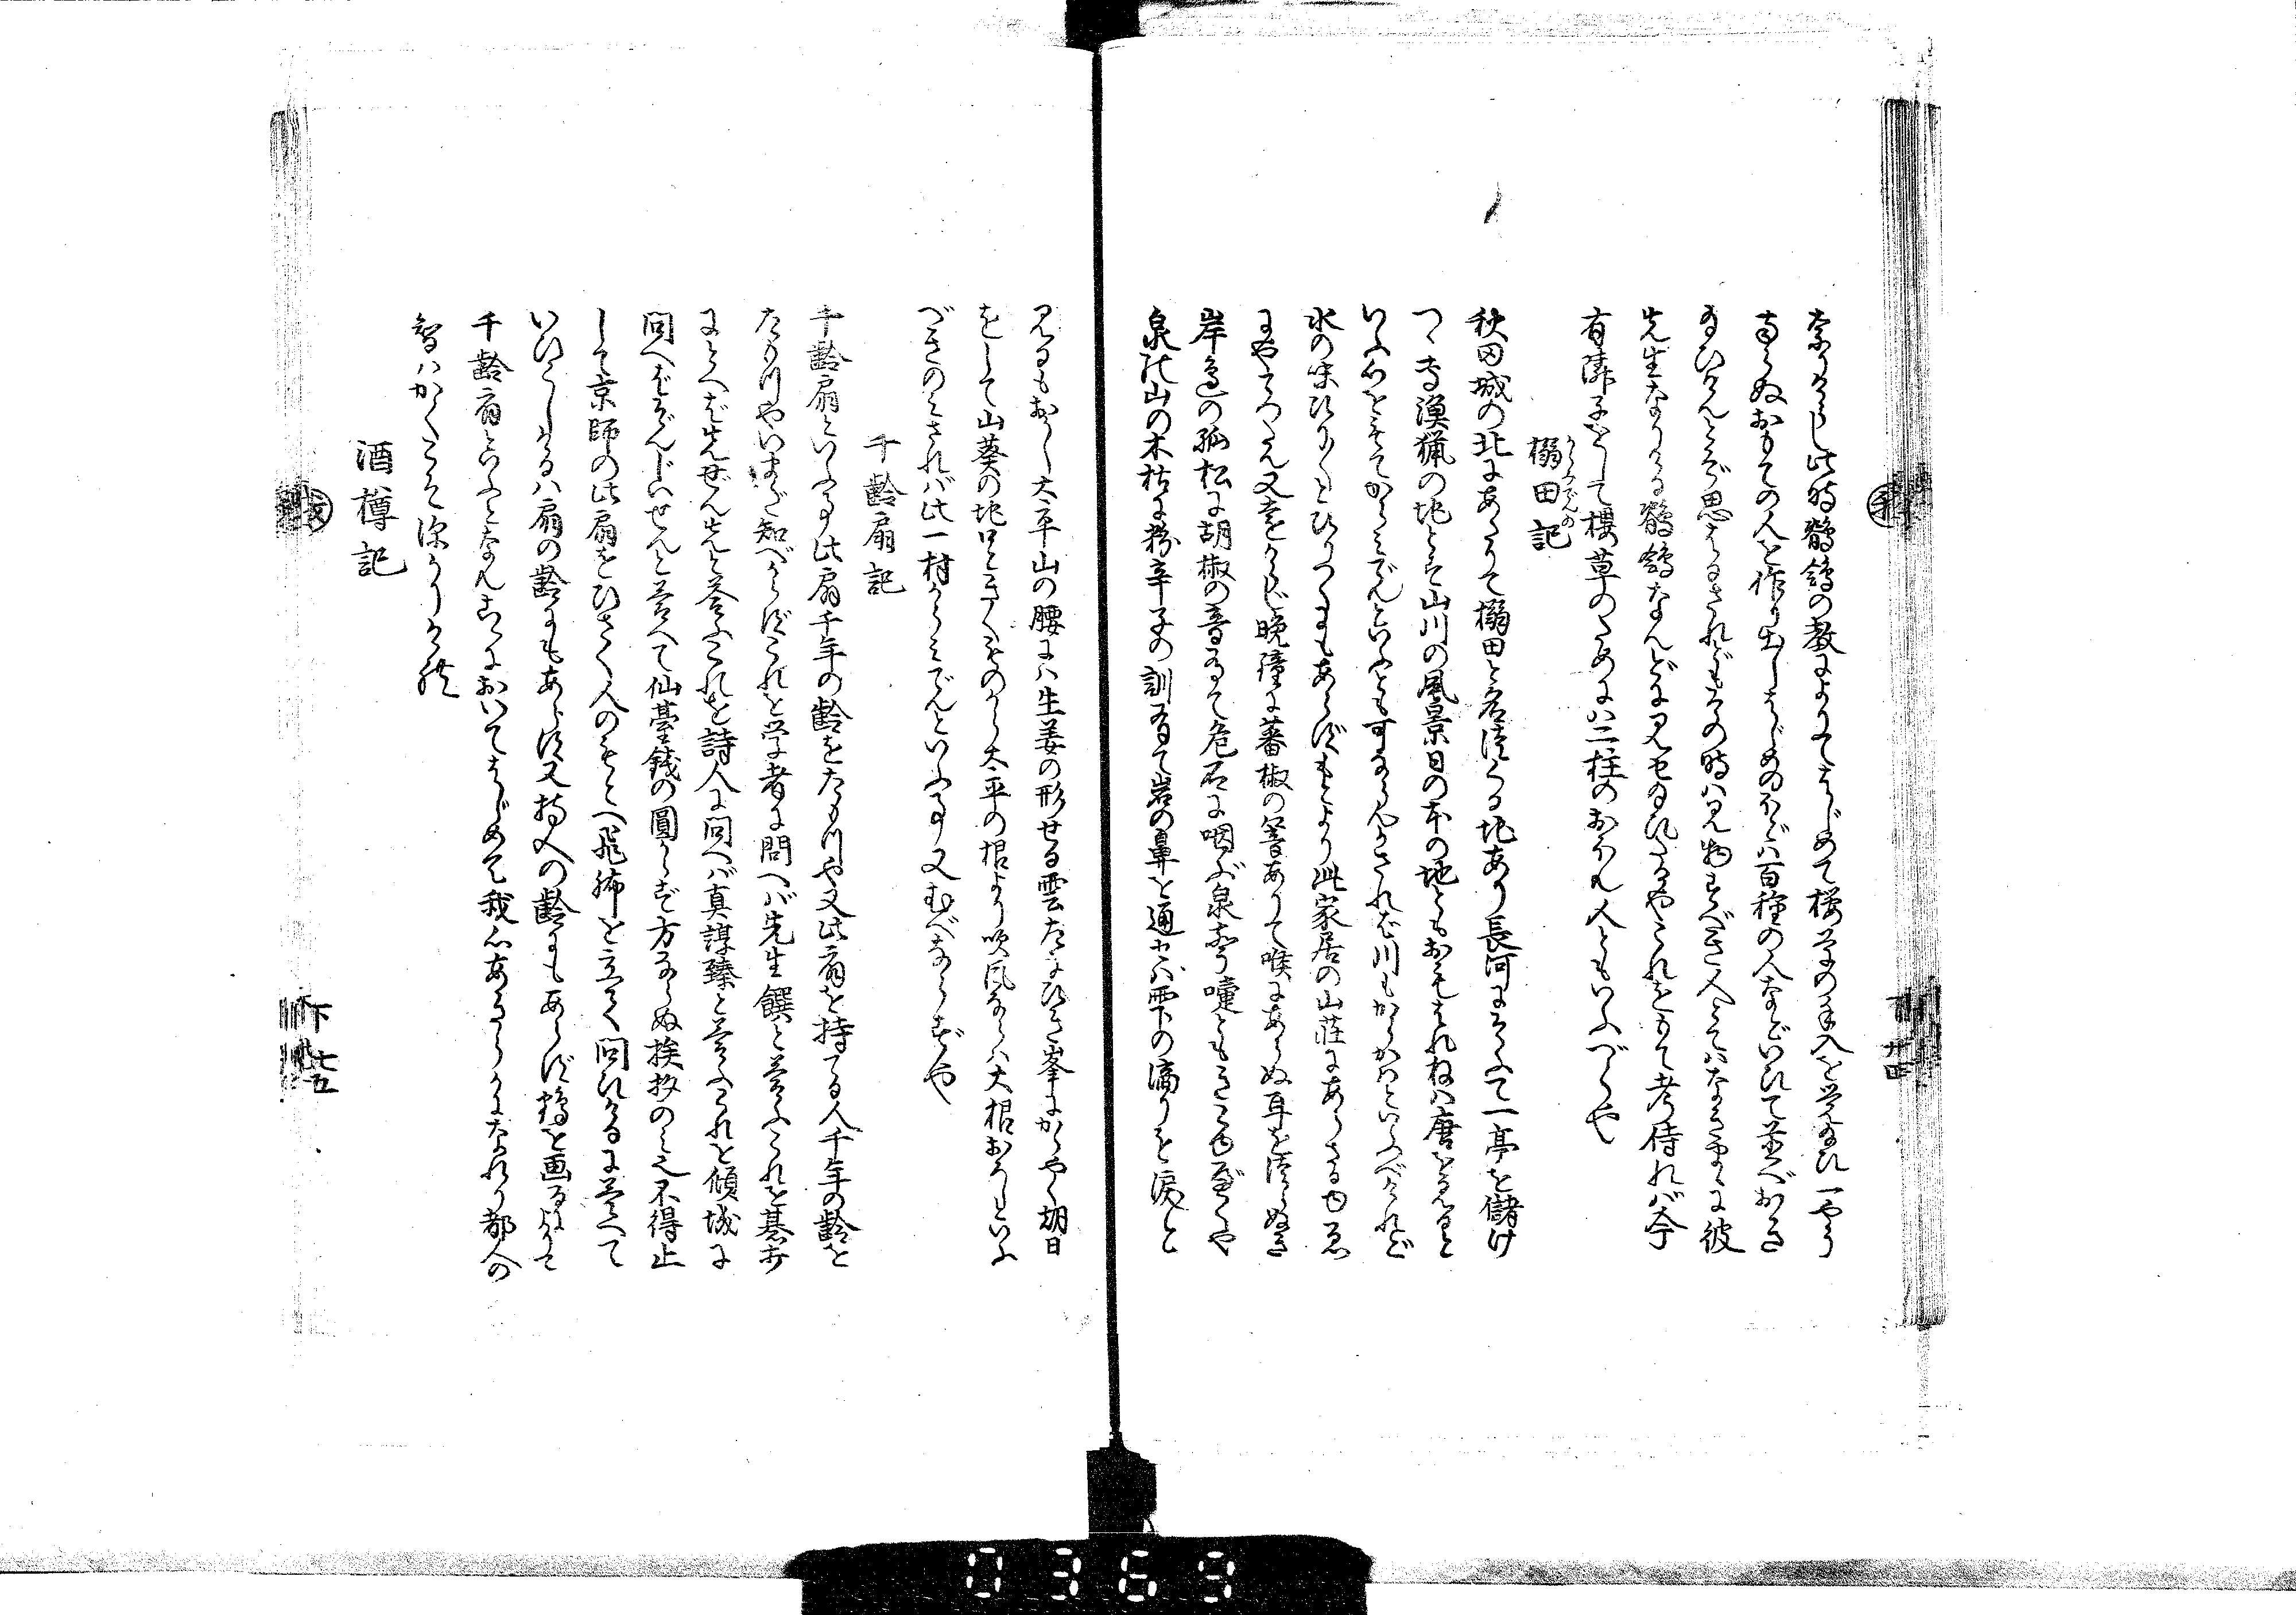 奈りけらし此時鶺鴒の教によりてはじめて櫻草の手入を覚給ひ一やう
ならぬおもての人を作り出しはじめのほどハ百種の人などいひて並べおき
給ひけんとぞ思はるされどもその時ハ見物すべき人とてハなき
先生なりける鶺鴒なんどに見せ給ひたるやこれをもて考侍れバ今
有隣子をして櫻草のためにハ二柱のおほん人ともいふべくや
榻田記
秋田城の北にあたりて榻田と名づくる地あり長河にそふて一亭を儲け
つゝ専漁猟の地とす山川の風景日の本の地ともおもはれねハ唐
いふ心をそてからみでんといふとも可ならんかされば川もからかはといふべけれど
水の味ひからくひりつくにもあらずもとより此家居の山荘にあらざるゆゑ
にや又幸をからじ晩鐘に蕃椒の響ありて喉にあらぬ耳をつらぬき
岸邉の孤松に胡椒の音ありて危石に咽ぶ泉
泉水山の木枯に粉辛子の訓ありて岩の鼻を通せバ雫下の滴りを涙と
見るもおかし太平山の腰にハ生姜の形せる雲たなびき峯にかゞやく朝日
をして山葵の地口ときくものから太平の根より吹風ならハ大根おろしといふ
べきのミされバ此一村からミでんといふ事又むべならずや
千齢扇記
千齢扇といふ事此扇千年の齢をたもつや又此扇を持てる人千年の齢を
たもつやいまだ知べからずこれを学者に問へバ先生饌と答ふこれを碁打
にとへば先せん先と答ふこれを詩人に問へバ真諄臻と答ふこれを傾城に
問へばぞんじいせんと答へて仙臺銭の圓からず方ならぬ挨拶のミ也不得止
して京師の此扇をひさく人のもとへ飛脚を立て問ひけるに答へて
いひこしけるハ扇の齢にもあらず又持人の齢にもあらず鶴を画るによりて
千齢扇といふとなんこゝにおいてはじめて我心あきらかになれり都人の
智ハかくこそ深かりけれ
酒樽記
下
七五
下
廿四
0369